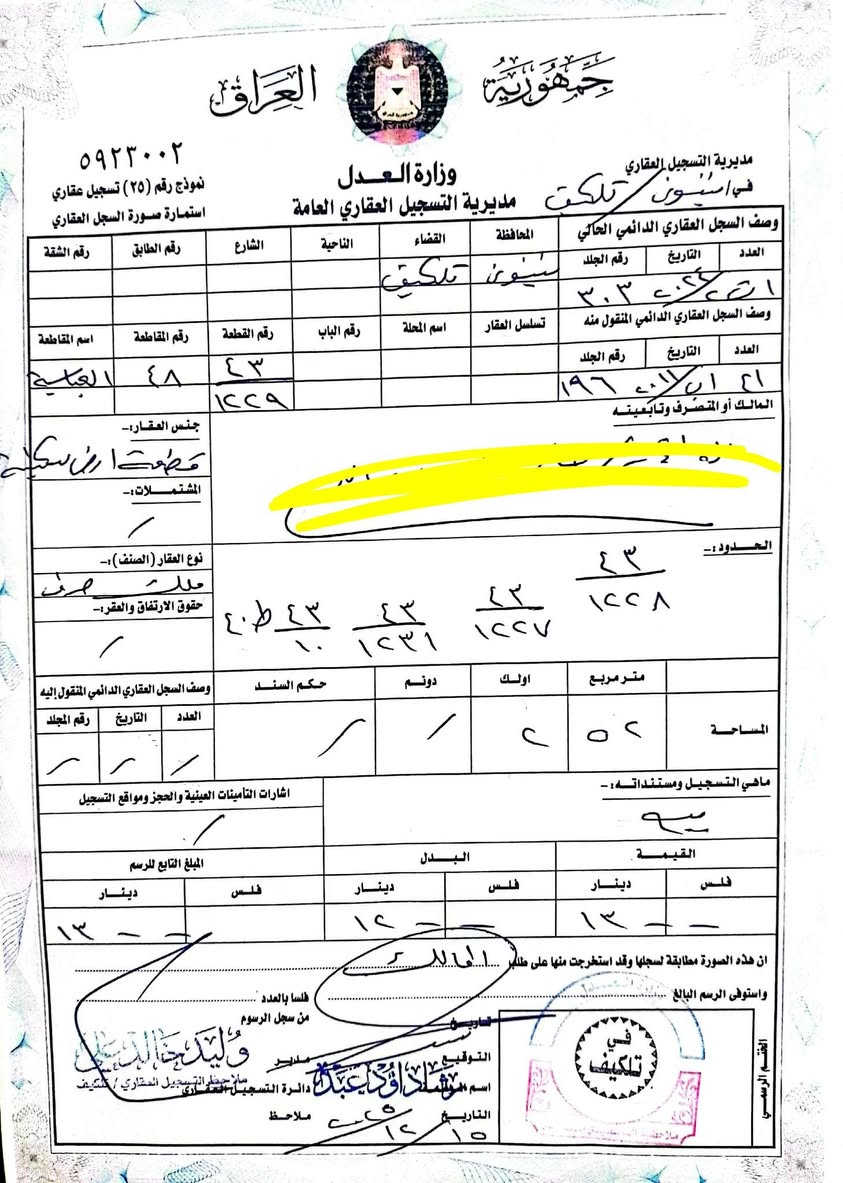 جمهورية العراق
٥٩٢٣٠٠٢
نموذج رقم (٢٥) تسجيل عقاري
استمارة صورة السجل العقاري
وزارة العدل
مديرية التسجيل العقاري العامة
مديرية التسجيل العقاري
في / نينوى / تلكيف
وصف السجل العقاري الدائمي الحالي
المحافظة القضاء الناحية الشارع رقم الطابق رقم الشقة
العدد التاريخ رقم الجلد
نينوى تلكيف
٢٠٢٤ ٣٠٣
وصف السجل العقاري الدائمي المنقول منه
تسلسل العقار اسم المحلة رقم الباب رقم القطعة رقم المقاطعة اسم المقاطعة
العدد التاريخ رقم الجلد
٢١ ٢٠١١ ١٩٦
٤٣/١٢٢٩ ٤٨ العباسية
المالك أو المتصرف وتابعيته
جنس العقار:-
قطعة ارض سكنية
المشتملات:-
/
الحدود:-
٤٣/١٢٢٨ ٤٣/١٢٢٧ ٤٣/١٢٣١ ٤٣/١٠ ط٤٠
نوع العقار (الصنف):-
ملك صرف
حقوق الارتفاق والعقر:-
/
متر مربع اولك دونم حكم السند
المساحة
٥٢ ٢ / /
وصف السجل العقاري الدائمي المنقول إليه
العدد التاريخ رقم المجلد
/ / /
ماهي التسجيل ومستنداته:-
اشارات التأمينات العينية والحجز ومواقع التسجيل
/
القيمة البدل المبلغ التابع للرسم
فلس دينار فلس دينار فلس دينار
- - ١٣ - - ١٢ - - ١٣
ان هذه الصورة مطابقة لسجلها وقد استخرجت منها على طلب المالك
واستوفى الرسم البالغ فلسا بالعدد
تاريخ من سجل الرسوم
التوقيع مدير
رشاد داود عبد
دائرة التسجيل العقاري
التاريخ ملاحظ
١٥ ١٢ ٢٠٢٥
وليد خالد
ملاحظ التسجيل العقاري / تلكيف
الختم الرسمي
في
تلكيف